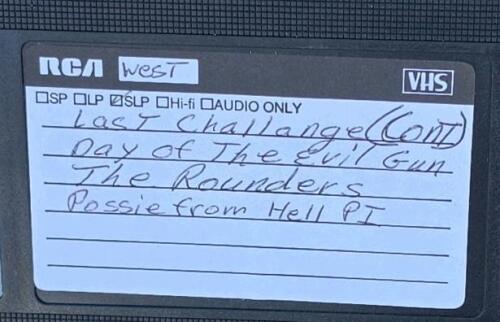 RCA West VHS
SP LP SLP Hi-fi AUDIO ONLY
Last Challange (Cont)
Day of The Evil Gun
The Rounders
Possie from Hell PI